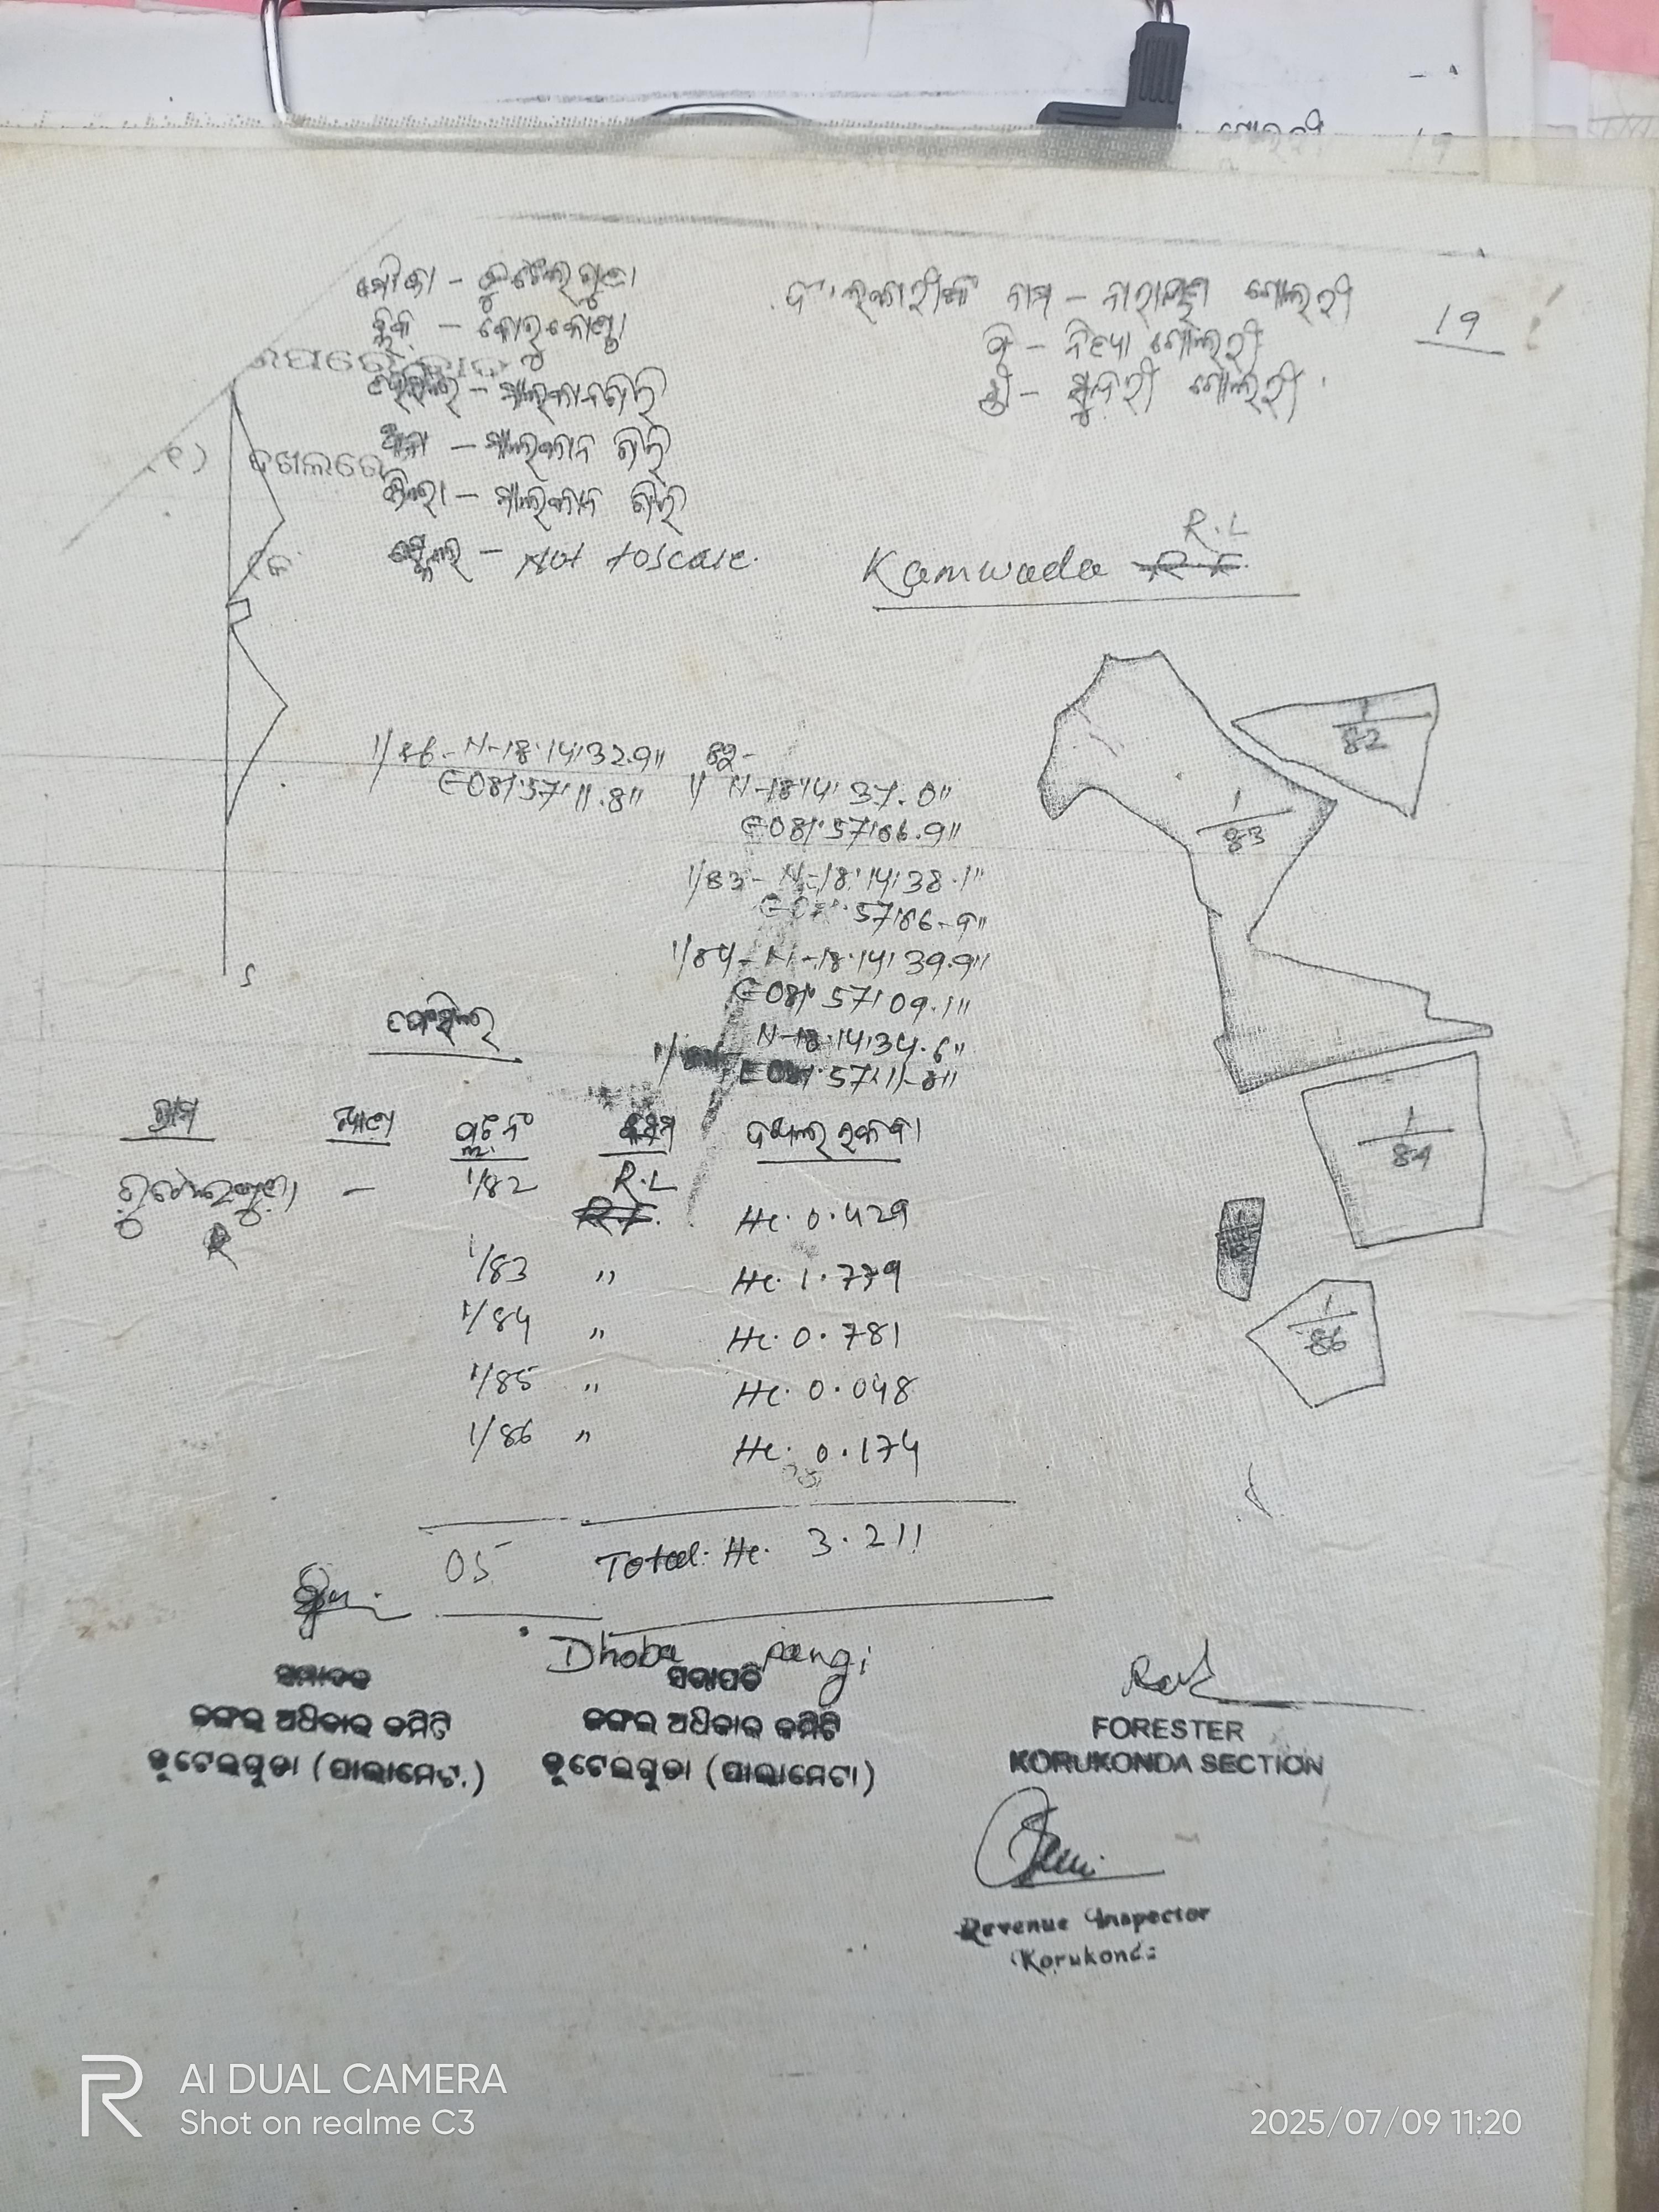 ମୌଜା - କୁଟେଲଗୁଡା
ବ୍ଲକ - କୋରୁକୋଣ୍ଡା
ତହସିଲ - ମାଲକାନଗିରି
ଥାନା - ମାଲକାନ ଗିରି
ଜିଲ୍ଲା - ମାଲକାନ ଗିରି
ସ୍କେଲ - Not toscale.
ନାମ - ନାରାୟଣ ଗୋଲରୀ
ପି - ଗୋଲରୀ
ସ୍ତ୍ରୀ - ସୁନ୍ଦରୀ ଗୋଲରୀ
19
(୧) ଦଖଲରେ
R.L
Kamwada
1/86 - N-18°14'32.9"
E081°57'11.8"
82-
1/ N-18°14'37.0"
E081°57'06.9"
1/83 - N-18°14'38.1"
E081°57'06.9"
1/84 - N-18°14'39.9"
E081°57'09.1"
N-18°14'34.6"
E081°57'11.8"
1/82
1/83
1/84
1/86
S
ଗ୍ରାମ ଖାତା ପ୍ଲଟ ନଂ କିସମ ଦଖଲ ରକବା
କୁଟେଲଗୁଡା - 1/82 R.L
R.F. He. 0.429
1/83 " He. 1.779
1/84 " He. 0.781
1/85 " He. 0.048
1/86 " He. 0.174
05 Total: He. 3.211
Dhoba pangi
ସମ୍ପାଦକ
ଜଙ୍ଗଲ ଅଧିକାର କମିଟି
କୁଟେଲଗୁଡା (ପାଲାମେଟ.)
ସଭାପତି
ଜଙ୍ଗଲ ଅଧିକାର କମିଟି
କୁଟେଲଗୁଡା (ପାଲାମେଟା)
FORESTER
KORUKONDA SECTION
Revenue Inspector
Korukonda
AI DUAL CAMERA
Shot on realme C3
2025/07/09 11:20